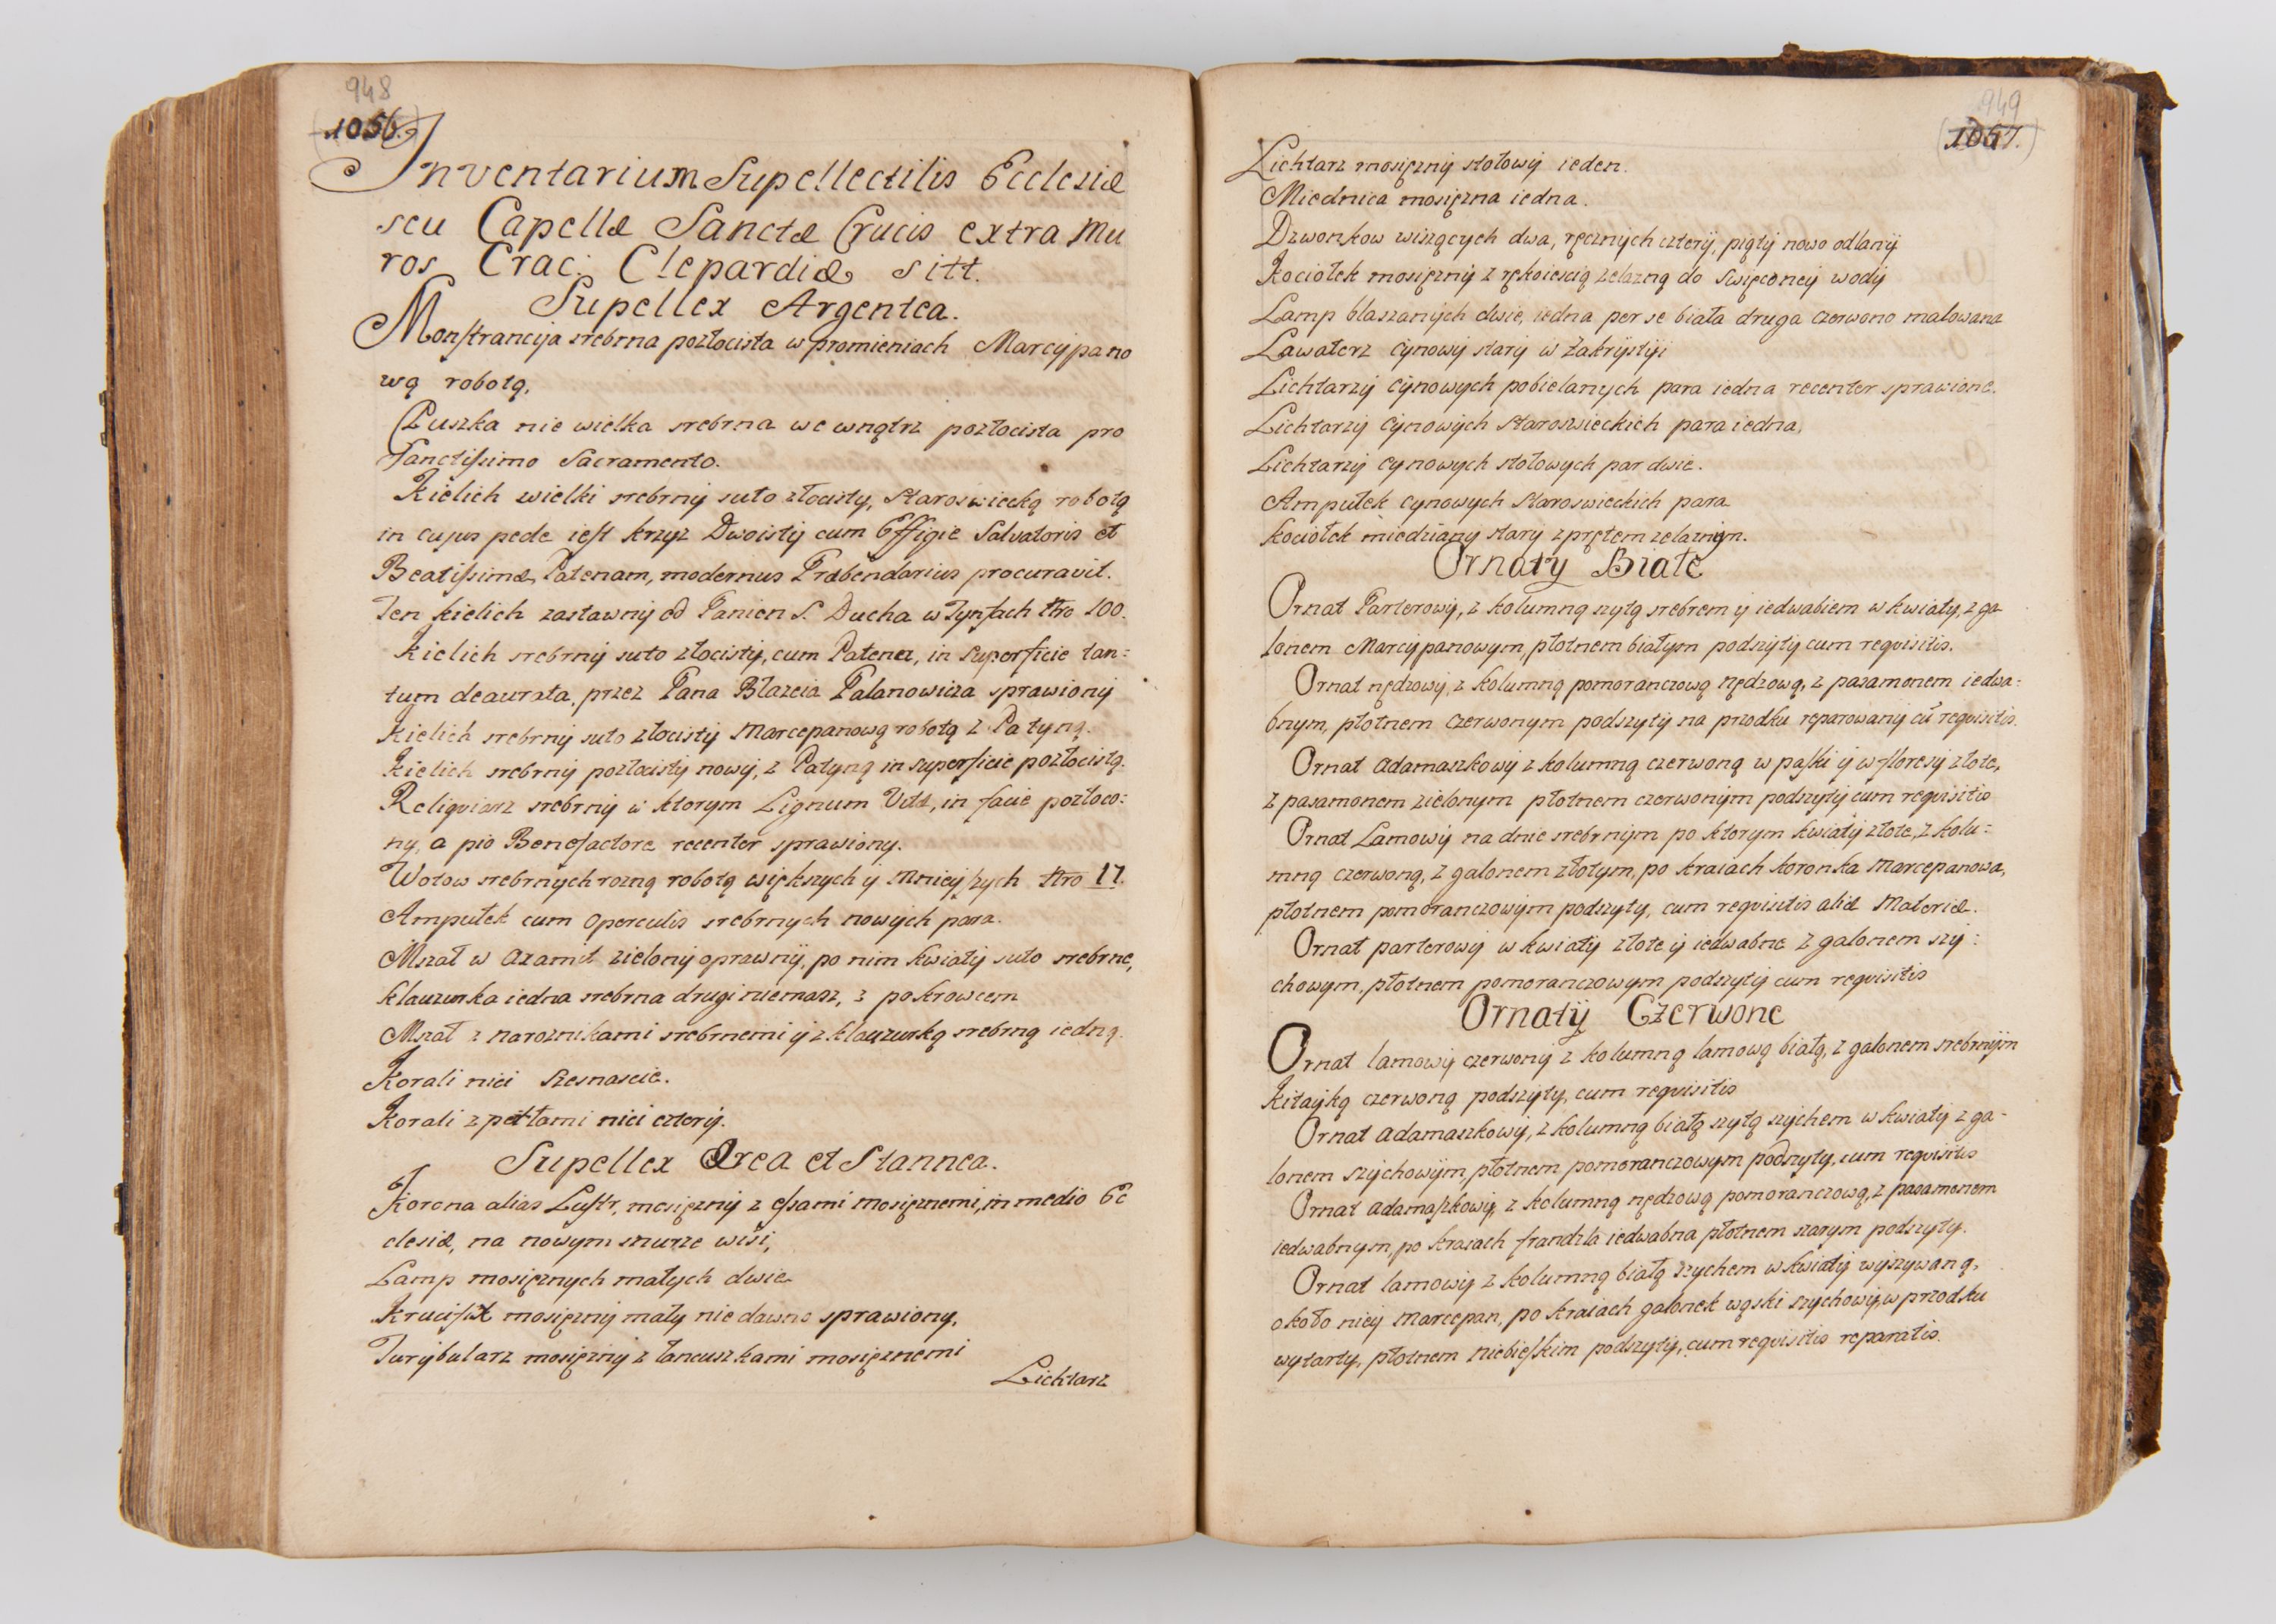 948
1056.
Inventarium Supellectilis Ecclesiæ
seu Capellæ Sanctæ Crucis extra Mu
ros Crac: Clepardiæ sitt.
Supellex Argentea.
Monstrancija srebrna pozłocista w promieniach Marcypano
wą robotą.
Puszka nie wielka srebrna we wnątrz pozłocista pro
Sanctissimo Sacramento.
Kielich wielki srebrny suto złocisty, staroswiecką robotą
in cujus pede iest krzyz Dwoisty cum Effigie Salvatoris et
Beatissimæ, Patenam, modernus Præbendarius procuravit.
Ten kielich zastawny od Panien S. Ducha w Tynfach Nro 100.
Kielich srebrny suto złocisty, cum Patena, in superficie tan=
tum deaurata, przez Pana Blazeia Palanowicza sprawiony
Kielich srebrny suto złocisty Marcepanową robotą z Patyną.
Kielich srebrny pozłocisty nowy, z Patyną in superficie pozłocistą.
Reliqviarz srebrny w ktorym Lignum Vitæ, in facie pozłoco=
ny, a pio Benefactore recenter sprawiony.
Wotow srebrnych rozną robotą większych y mnieyszych Nro 17.
Ampułek cum operculis srebrnych nowych para.
Mszał w axamit zielony oprawny, po nim kwiaty suto srebrne,
klauzurka iedna srebrna drugi niemasz, z pokrowcem
Mszał z naroznikami srebrnemi y z klauzurką srebrną iedną.
Korali nici szesnascie.
Korali z perłami nici cztery.
Supellex Ærea et Stannea.
Korona alias Lustr, mosięzny z essami mosięznemi, in medio Ec
clesiæ, na nowym snurze wisi,
Lamp mosięznych małych dwie
Krucifix mosięzny mały nie dawno sprawiony,
Turybularz mosięzny z łancuszkami mosięznemi
Lichtarz
949
1057.
Lichtarz mosięzny stołowy ieden.
Miednica mosięzna iedna.
Dzwonkow wiszących dwa, ręcznych cztery, piąty nowo odlany
Kociołek mosięzny z rękoiescią zelazną do swięconey wody
Lamp blaszanych dwie, iedna per se biała druga czerwono malowana
Lawaterz cynowy stary w Zakrystyi
Lichtarzy cynowych pobielanych para iedna recenter sprawione.
Lichtarzy cynowych staroswieckich para iedna,
Lichtarzy cynowych stołowych par dwie.
Ampułek cynowych staroswieckich para
Kociołek miedziany stary z prętem zelaznym.
Ornaty Białe
Ornat Parterowy, z kolumną szytą srebrem y iedwabiem w kwiaty, z ga
lonem Marcypanowym, płotnem białym podszyty cum reqvisitis.
Ornat nędzowy, z kolumną pomoranczową nędzową, z pasamonem iedwa=
bnym, płotnem czerwonym podszyty na przodku reparowany cũ reqvisitis.
Ornat adamaszkowy z kolumną czerwoną w paski y w floresy złote,
z pasamonem zielonym płotnem czerwonym podszyty cum reqvisitis
Ornat Lamowy na dnie srebrnym po ktorym kwiaty złote, z kolu=
mną czerwoną, z galonem złotym, po kraiach koronka Marcepanowa,
płotnem pomoranczowym podszyty, cum reqvisitis aliæ Materiæ.
Ornat parterowy w kwiaty złote y iedwabne z galonem szy=
chowym, płotnem pomoranczowym podszyty cum reqvisitis
Ornaty Czerwone
Ornat lamowy czerwony z kolumną lamową białą, z galonem srebrnym
Kitayką czerwoną podszyty, cum reqvisitis
Ornat adamaszkowy, z kolumną białą szytą szychem w kwiaty z ga=
lonem szychowym, płotnem pomoranczowym podszyty, cum reqvisitis
Ornat adamaszkowy, z kolumną nędzową pomoranczową, z pasamonem
iedwabnym, po kraiach frandzla iedwabna płotnem szarym podszyty.
Ornat lamowy z kolumną białą szychem w kwiaty wyszywaną,
około niey marcepan, po kraiach galonek wąski szychowy, w przodku
wytarty, płotnem niebieskim podszyty, cum reqvisitis reparatis.